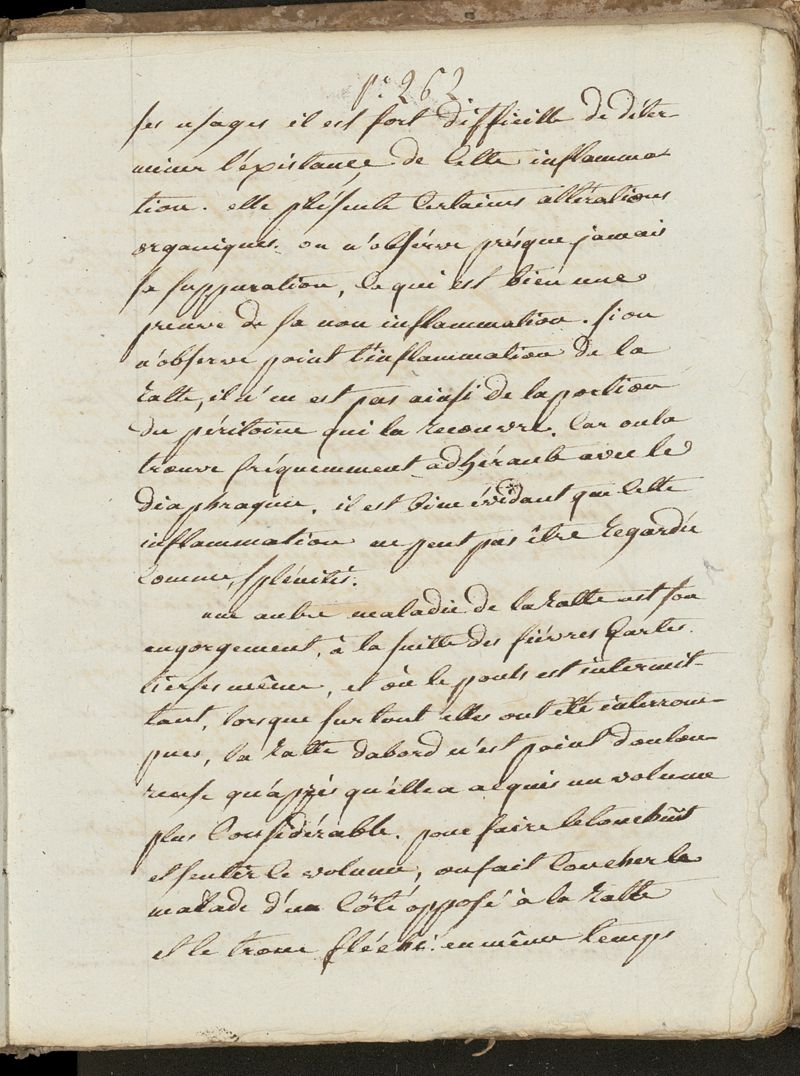 pe. 262
ses usages il est fort difficille de déter
miner l'éxistance de cette inflamma
tion. elle présente certaines altérations
organiques. on n'observe présque jamais
sa suppuration, ce qui est bien une
preuve de sa non inflammation. si on
n'observe point l'inflammation de la
ratte, il n'en est pas ainsi de la portion
du péritoine qui la recouvre. car on la
trouve fréquemment adhérante avec le
diaphragme. il est bien évidant que cette
inflammation ne peut pas être regardée
comme splénitis.
une autre maladie de la ratte est son
engorgement, à la suitte des fiévres quartes.
tierses même, et où le pouls est intermit-
tant, lorsque surtout elles ont été interrom-
pues, la ratte dabord n'est point doulou-
reuse qu'appés qu'elle a acquis un volume
plus considérable. pour faire le
et sentir le volume, on fait coucher le
malade d'un côté opposé à la ratte
et le tronc fléchi en même temps